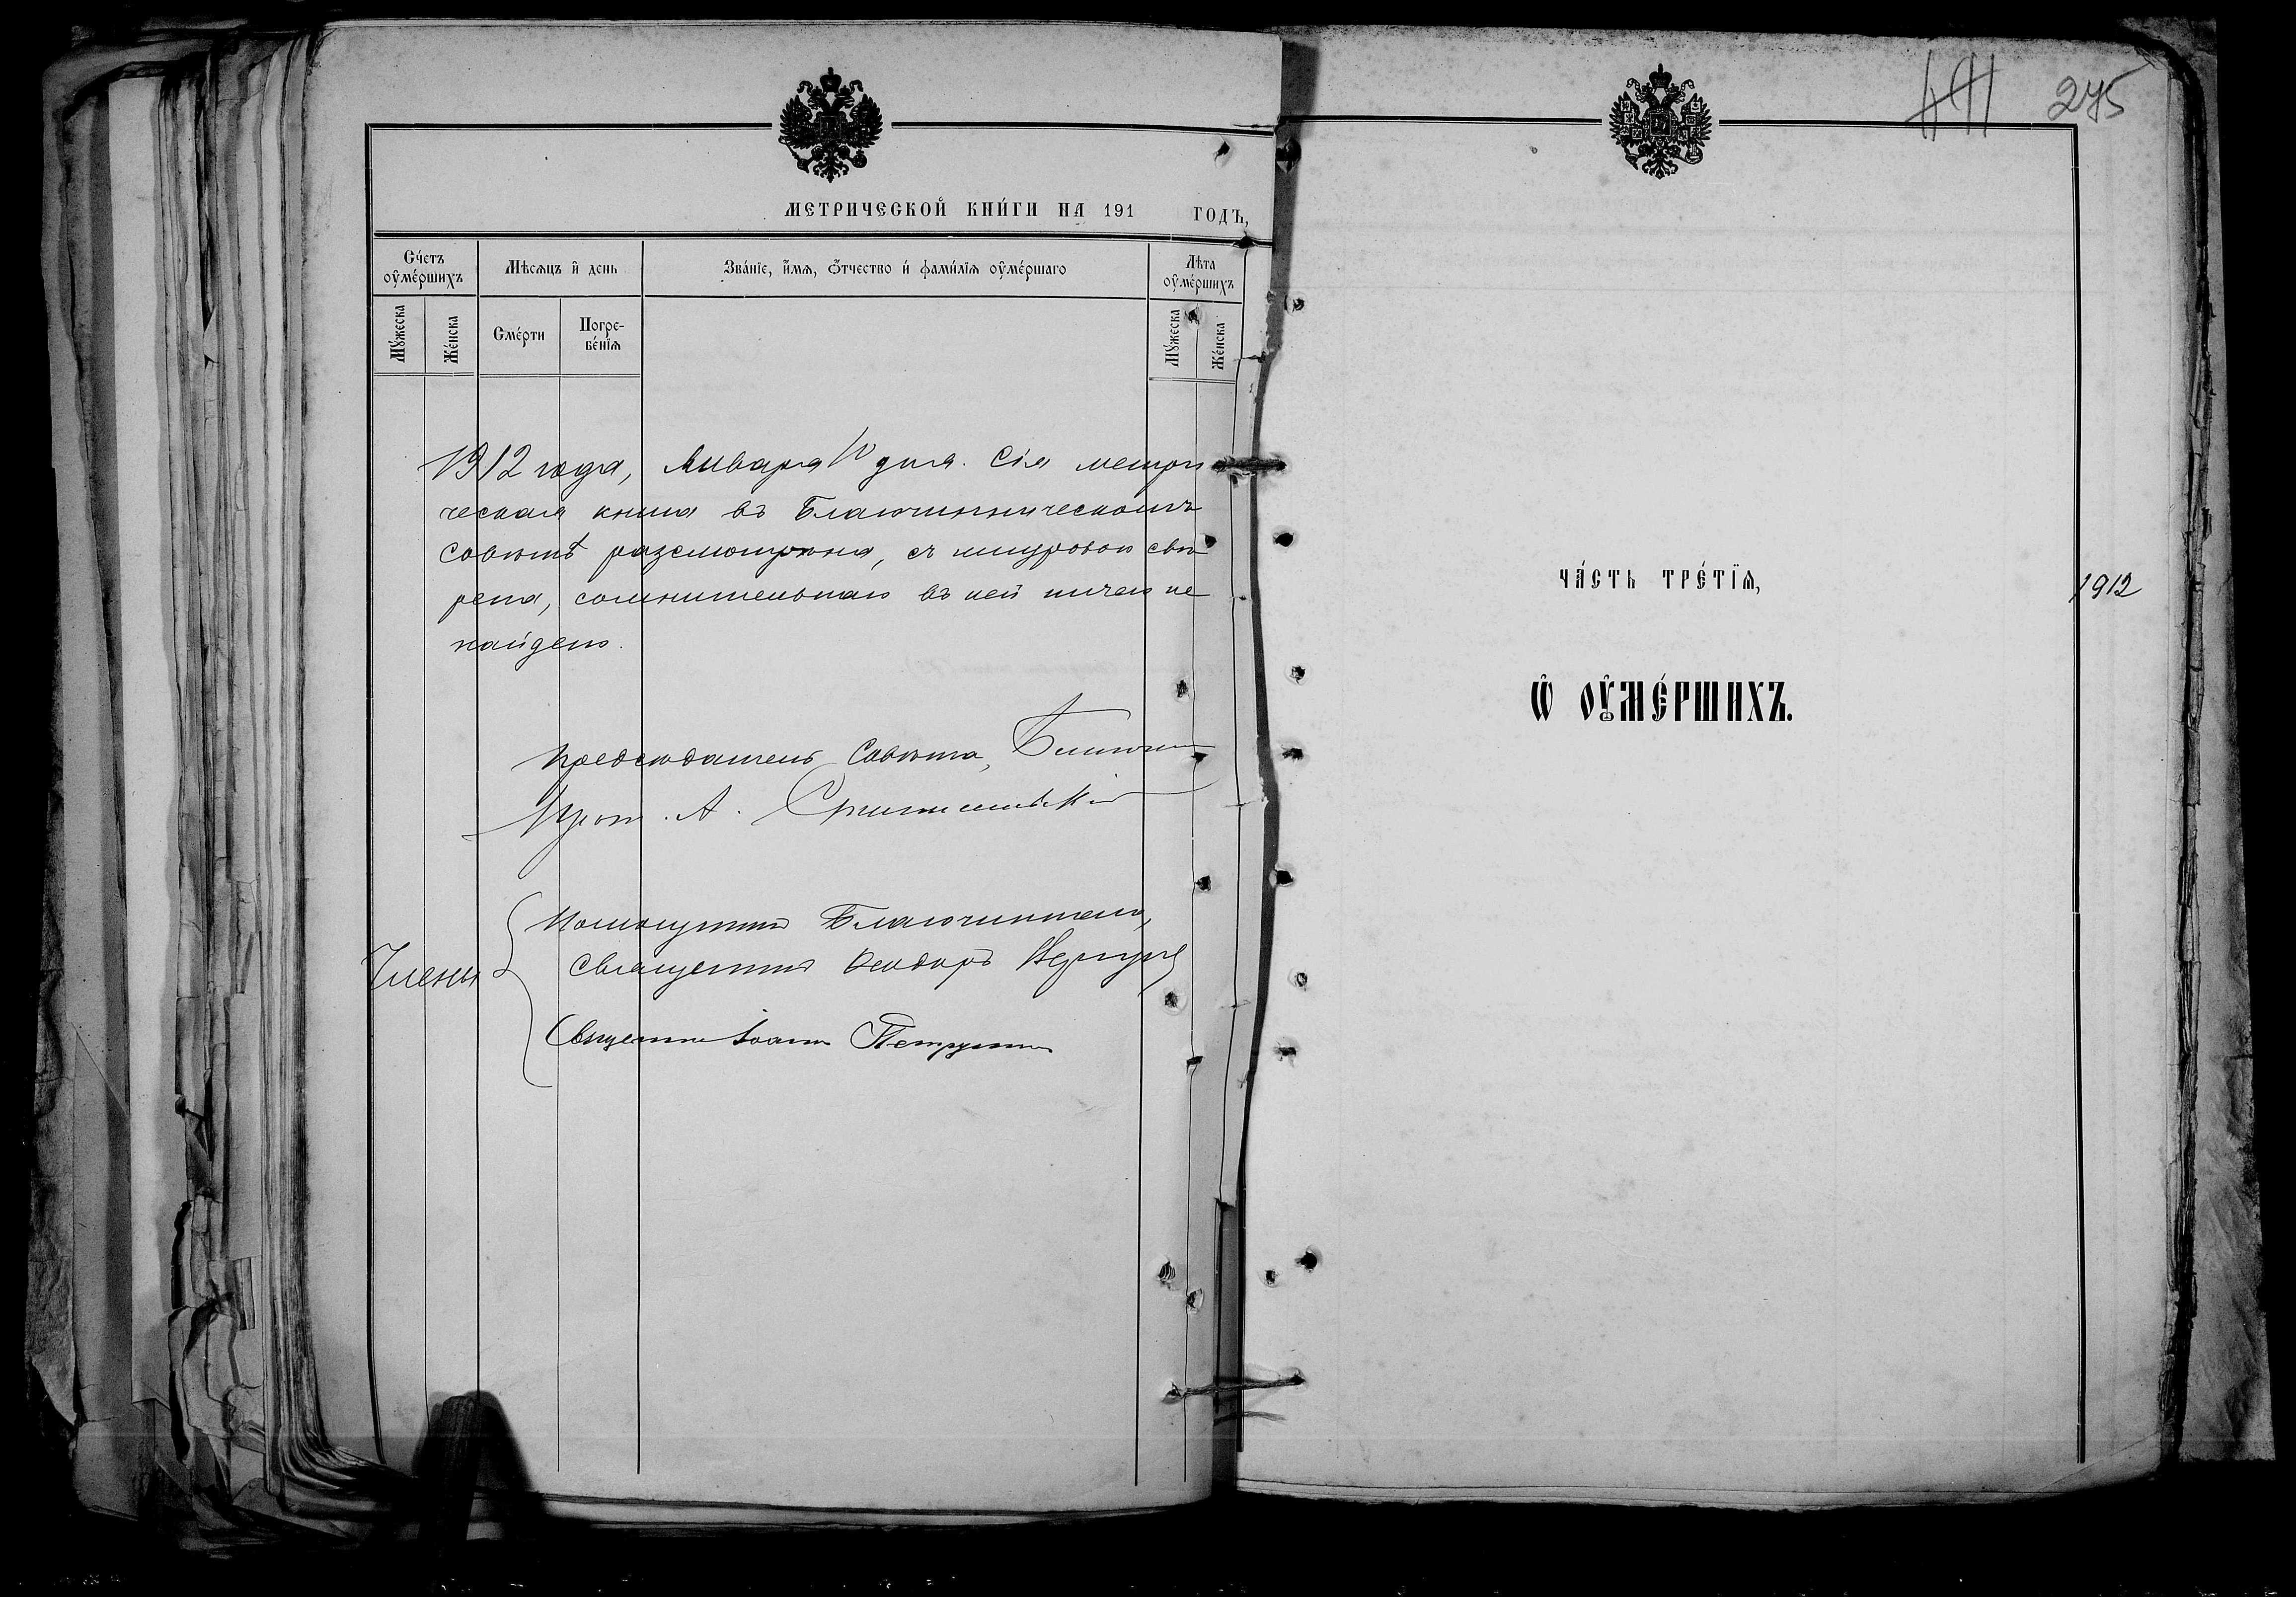 МЕТРИЧЕСКОЙ КНИ́ГИ НА 191 ГОДЪ,
Сче́тъ оу҆ме́ршихъ
Мѣ́сѧцъ и҆ день
Зва́нїе, и҆́мѧ, ѻ҆́тчество и҆ фами́лїѧ оу҆ме́ршаго
Лѣ́та оу҆ме́ршихъ
Му́жеска
Же́нска
Сме́рти
Погре-
бе́нїѧ
Му́жеска
Же́нска
1912 года, Января 10 дня. Сія метри
ческая книга въ Благочинническомъ
Совѣтѣ разсмотрѣна, съ шнуровою свѣ
рена, сомнительнаго въ ней ничего не
найдено.
Предсѣдатель Совѣта,
Прот. А.
Члены
Помощникъ Благочиннаго,
Священникъ Ѳеодоръ
Священникъ Іоаннъ
275
ЧА́СТЬ ТРЕ́ТЇѦ,
1912
Ѡ҆ ОУ҆МЕ́РШИХЪ.